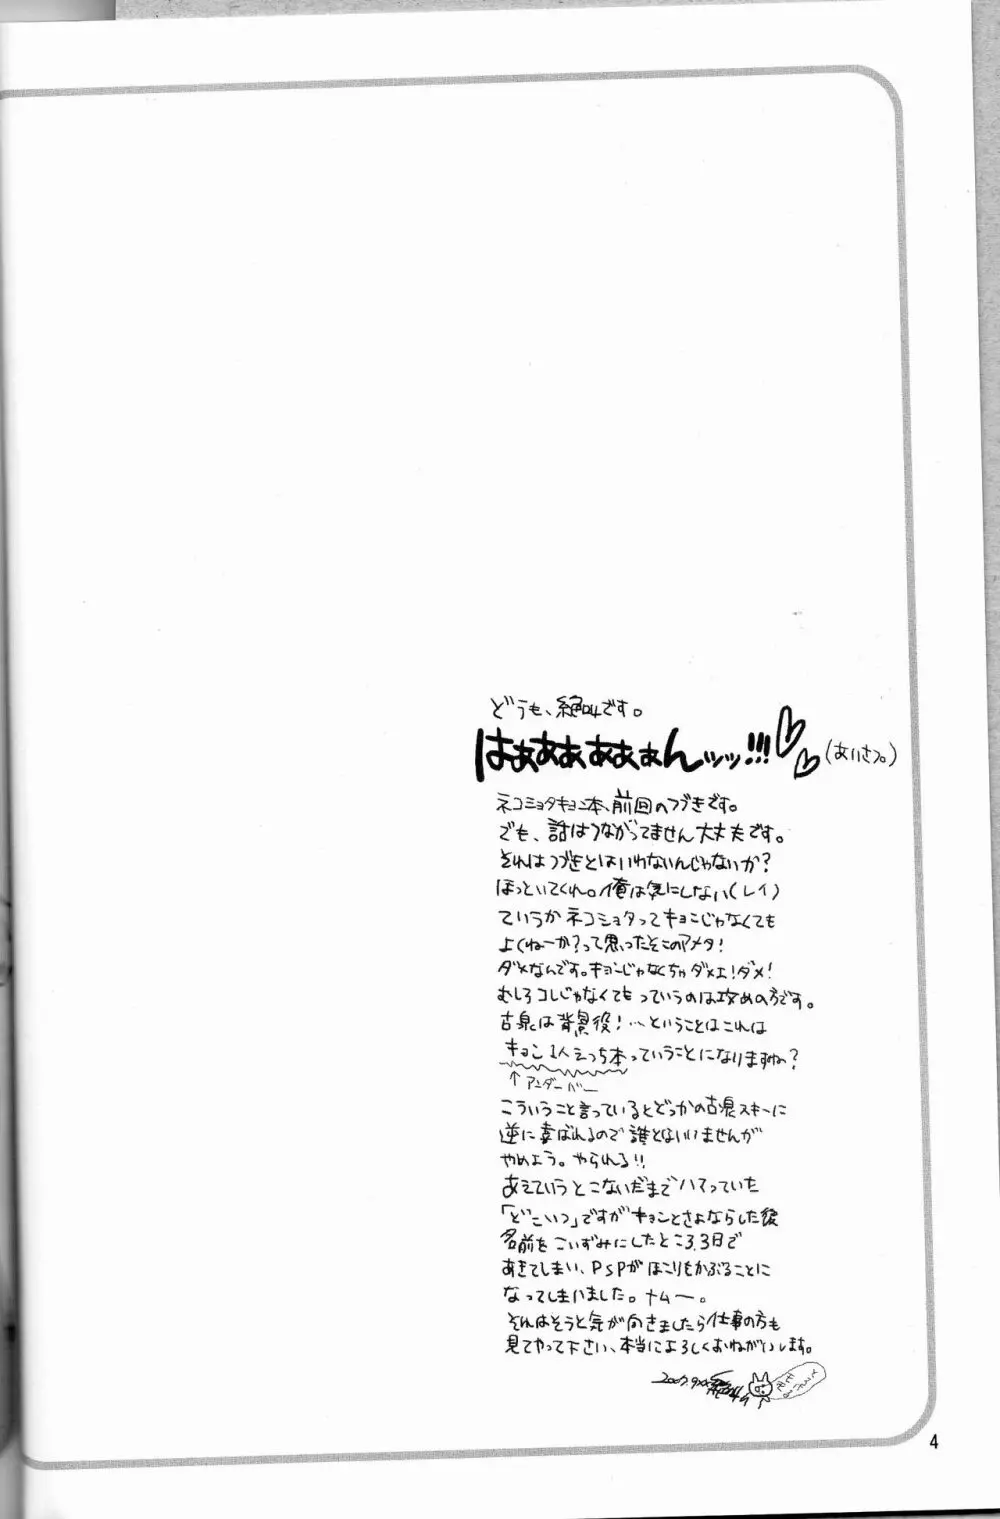 どうも、絶叫です。
はぁぁぁぁぁぁんッッ!!!
(あいさつ。)
ネコショタキョン本、前回のつづきです。
でも、話はつながってません大丈夫です。
それはつづきとはいわないんじゃないか?
ほっといてくれ。俺は気にしない(レイ)
ていうかネコショタってキョンじゃなくても
よくねーか?って思ったそこのアメタ!
ダメなんです。キョンじゃなくちゃダメェ!ダメ!
むしろコレじゃなくてもっていうのは攻めの方です。
古泉は背景役!…ということはこれは
キョン1人えっち本っていうことになりますね?
↑アンダーバー
こういうこと言っているとどっかの古泉スキーに
逆に喜ばれるので誰とはいいませんが
やめよう。やられる!!
あえていうとこないだまでハマっていた
「どこいつ」ですがキョンとさよならした後
名前をこいずみにしたところ3日で
あきてしまい、PSPがほこりをかぶることに
なってしまいました。ナムー。
それはそうと気が向きましたら仕事の方も
見てやって下さい、本当によろしくおねがいします。
2007.9
4